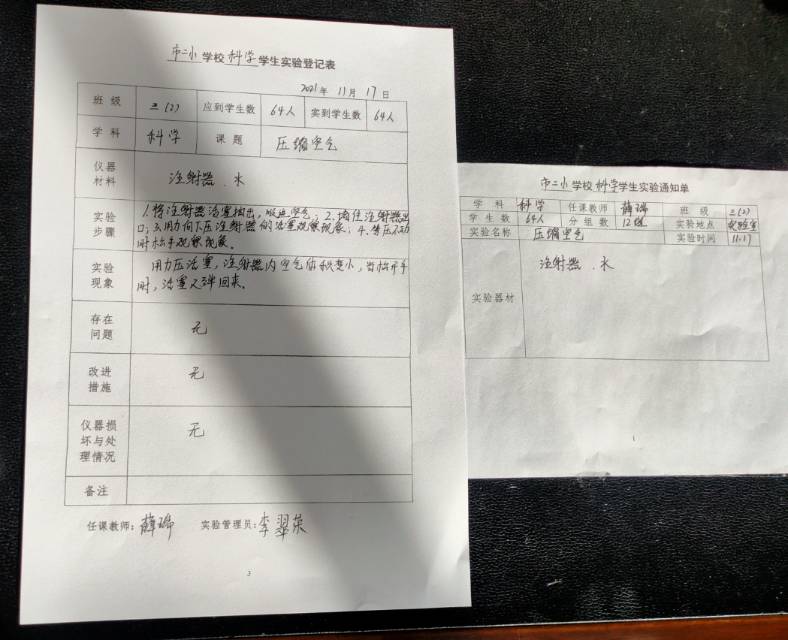 市二小学校科学学生实验登记表
2021年 11月 17日
班级 三(2) 应到学生数 64人 实到学生数 64人
学科 科学 课题 压缩空气
仪器材料 注射器、水
实验步骤 1.将注射器活塞抽出,吸进空气;2.堵住注射器出
口;3.用力向下压注射器的活塞观察现象;4.等压不动
时松手观察现象。
实验现象 用力压活塞,注射器内空气体积变小,当松开手
时,活塞又弹回来。
存在问题 无
改进措施 无
仪器损坏与处理情况 无
备注
任课教师:薛瑞 实验管理员:李翠英
3
市二小学校科学学生实验通知单
学科 科学 任课教师 薛瑞 班级 三(2)
学生数 64人 分组数 12组 实验地点 实验室
实验名称 压缩空气 实验时间 11.17
实验器材 注射器、水
1